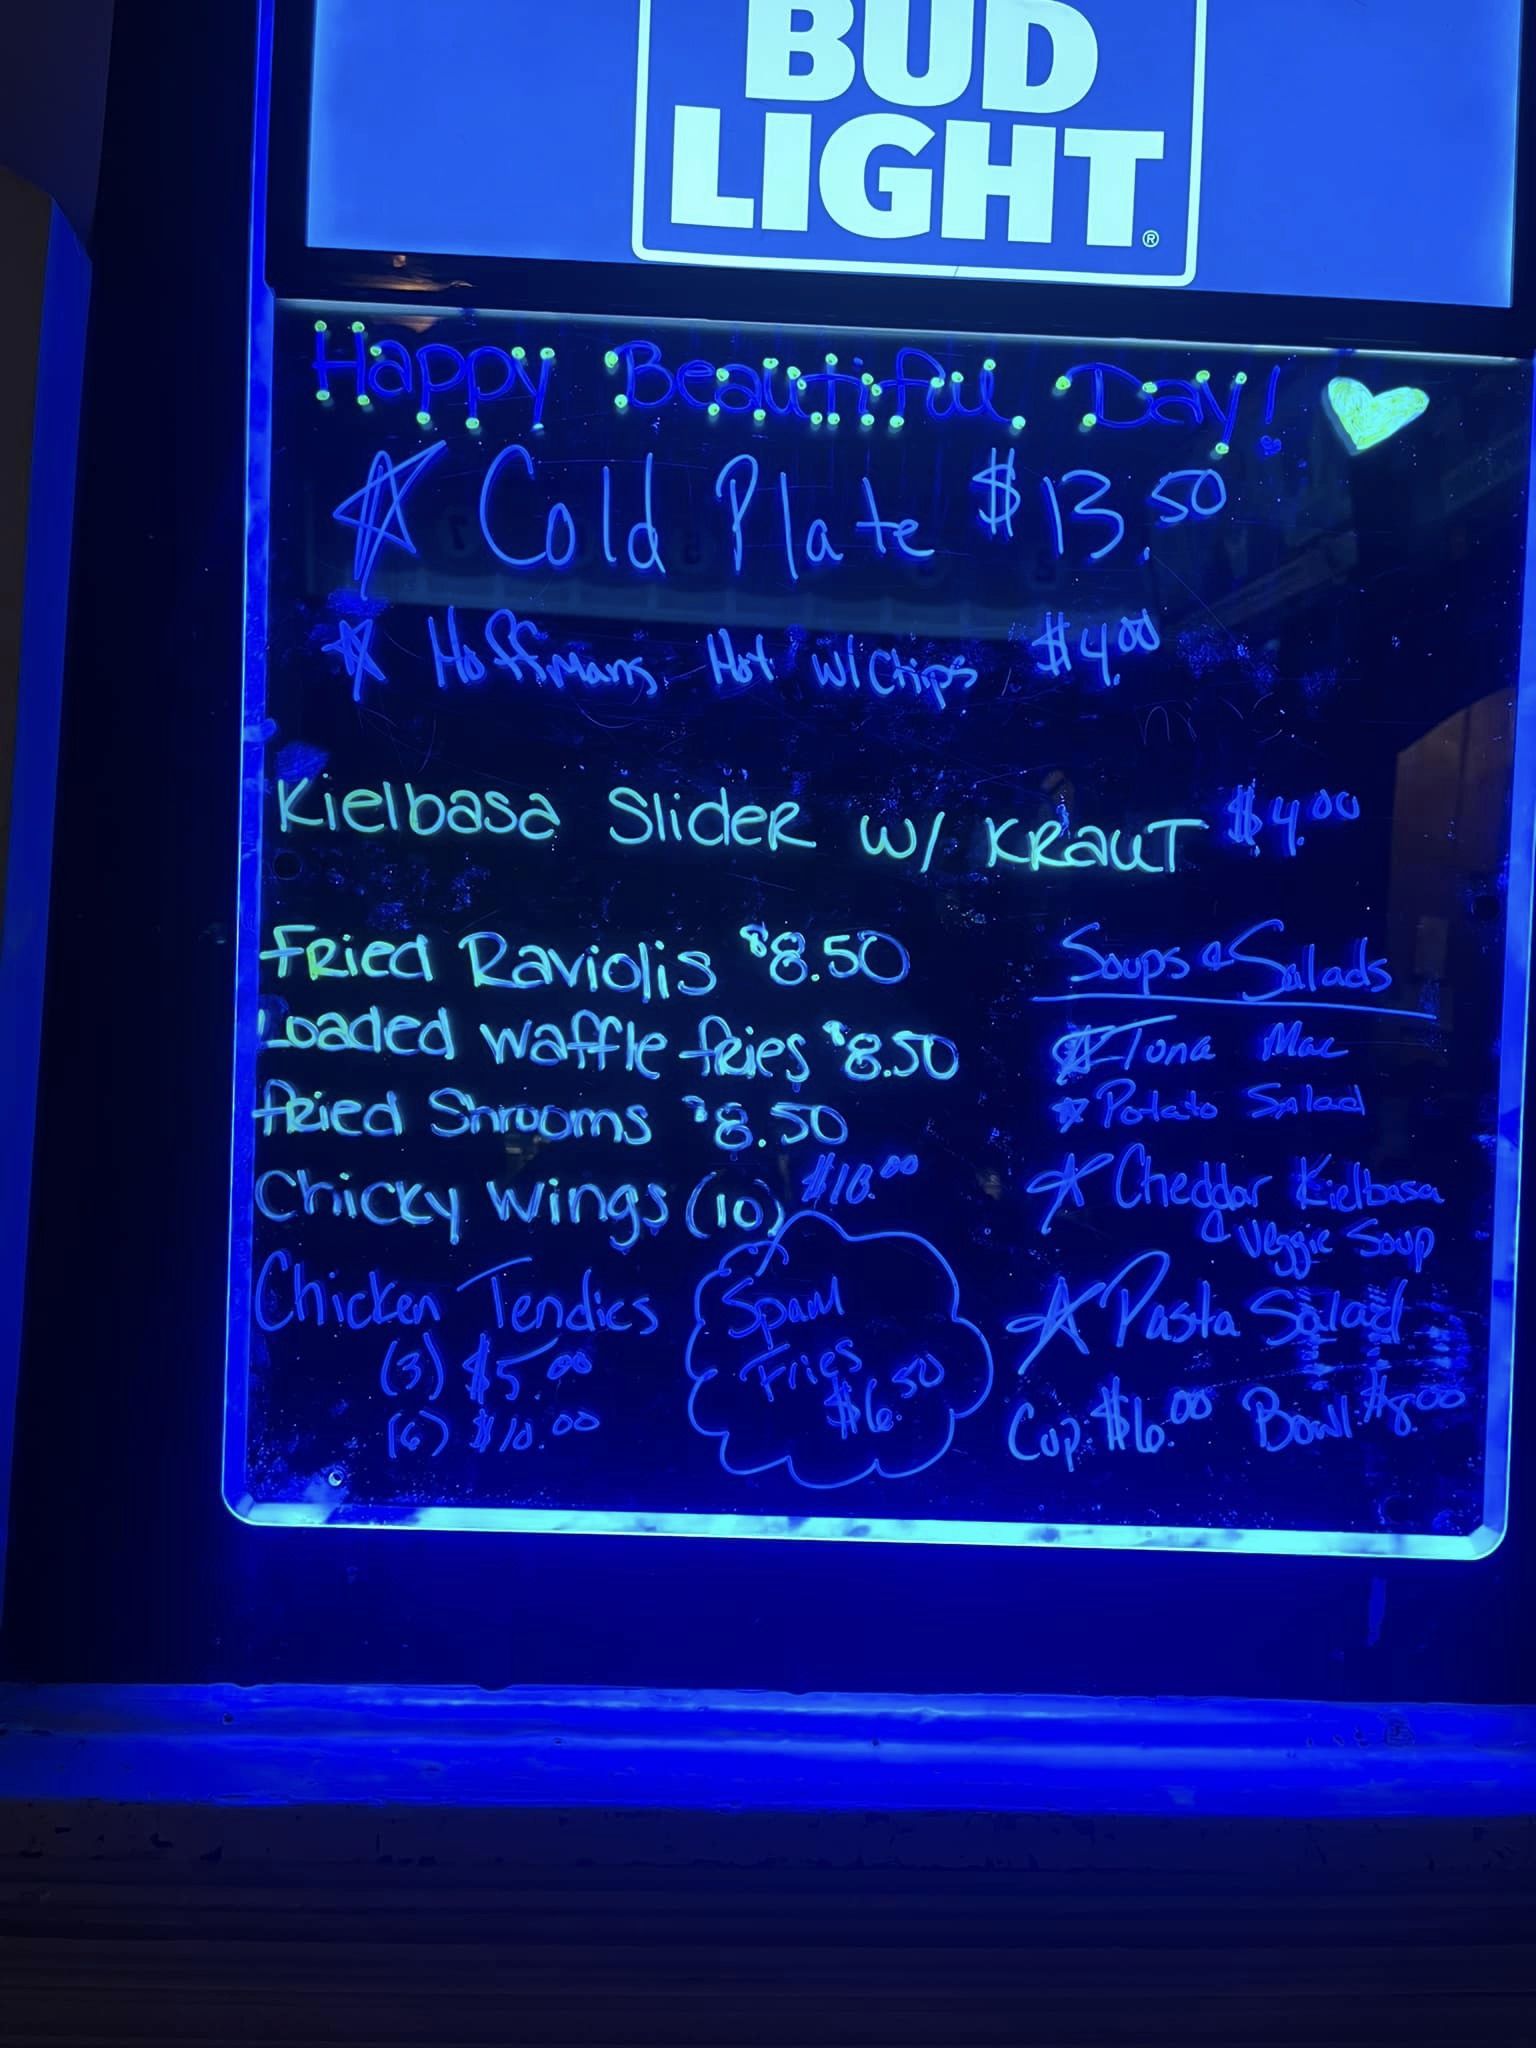 BUD
LIGHT®
Happy Beautiful Day!
Cold Plate $13.50
Hoffmans Hot w/Chips $4.00
Kielbasa Slider w/ Kraut $4.00
Fried Raviolis $8.50
Loaded Waffle fries $8.50
fried Shrooms $8.50
Chicky Wings (10) $10.00
Chicken Tendies
(3) $5.00
(6) $10.00
Spam
Fries
$6.50
Soups & Salads
Tuna Mac
Potato Salad
Cheddar Kielbasa
& Veggie Soup
Pasta Salad
Cup $6.00 Bowl $8.00